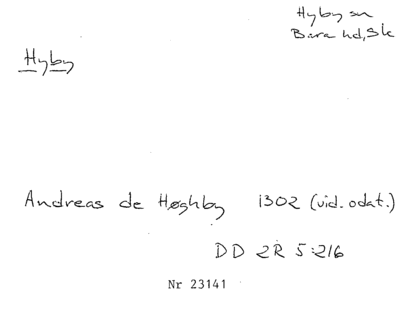 Hyby sn
Bara hd, Sk
Hyby
Andreas de Høghby 1302 (vid. odat.)
DD 2R 5:216
Nr 23141